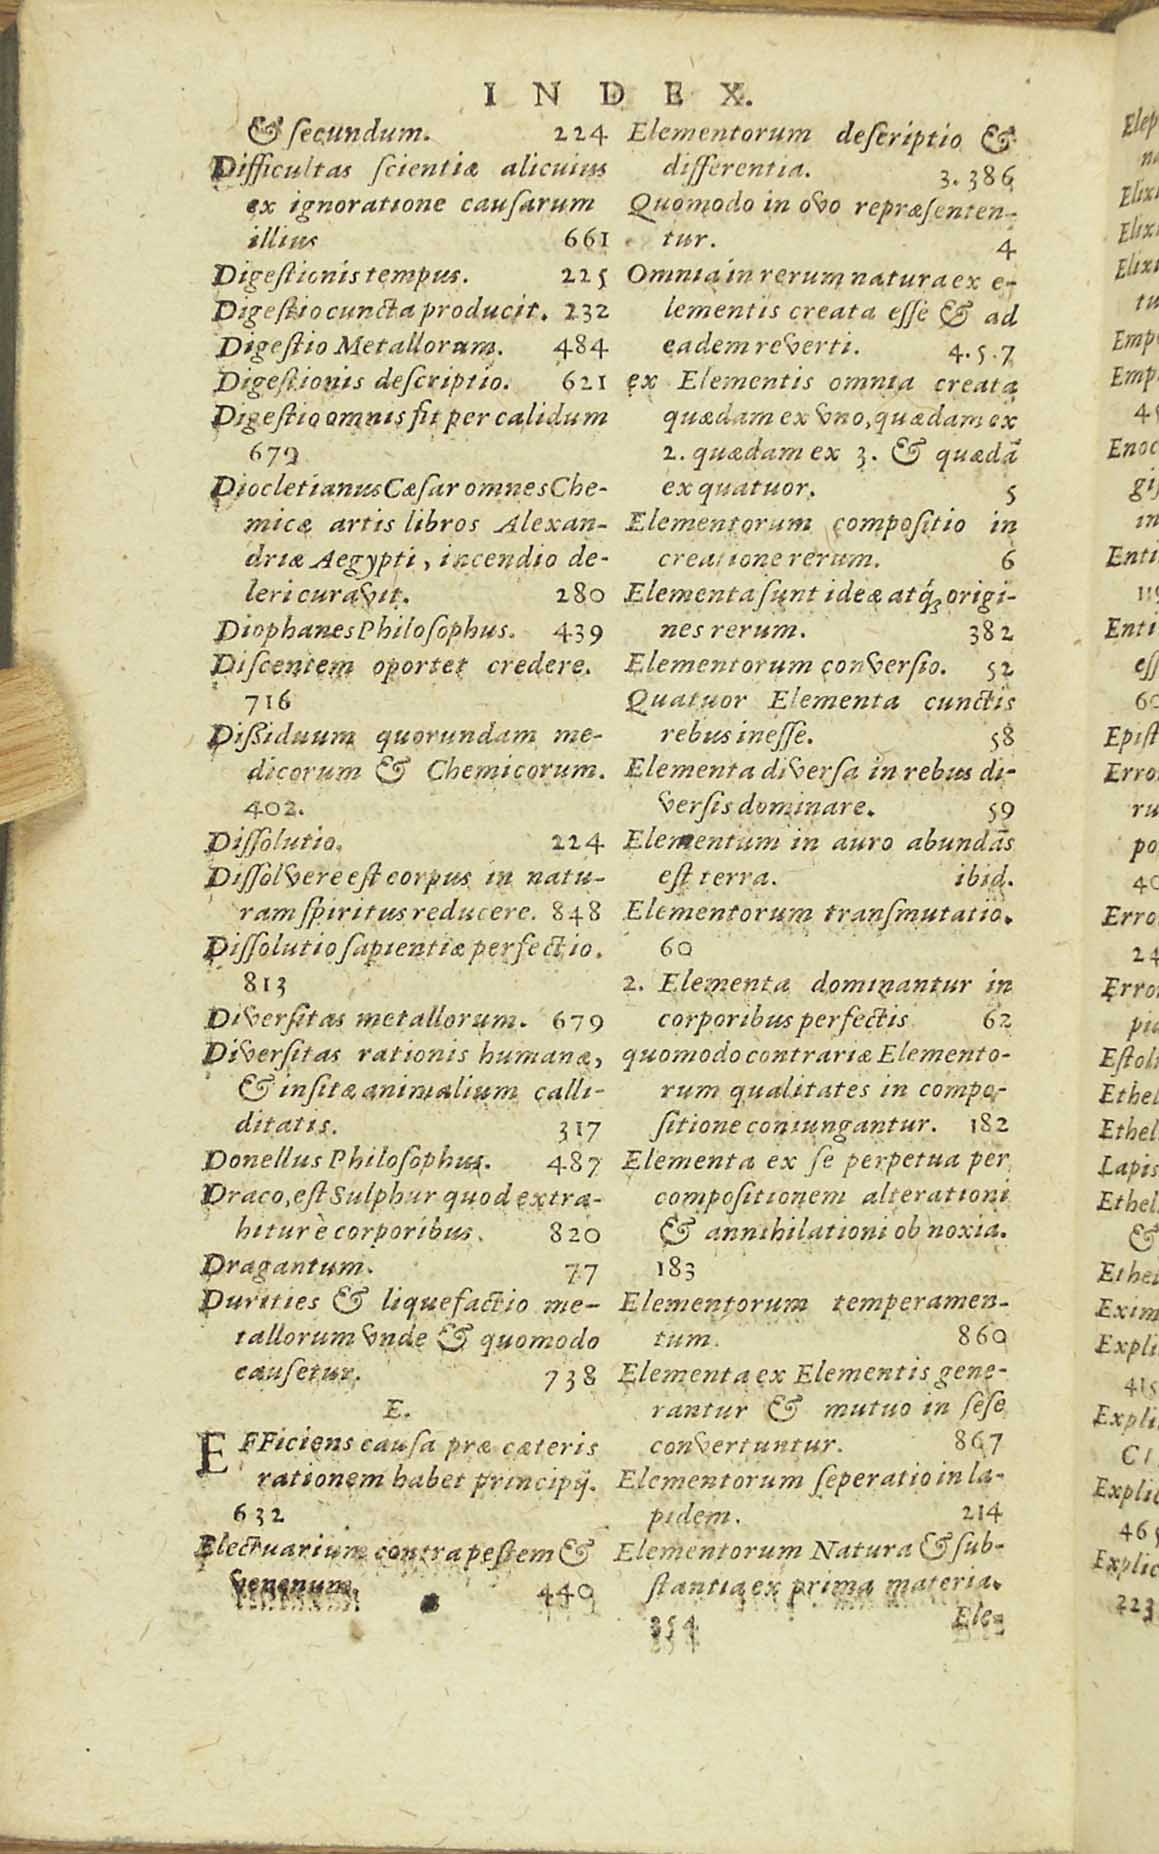 INDEX.
& ſecundum. 224
Difficultas ſcientiæ alicuius
ex ignoratione cauſarum
illius 661
Digeſtionis tempus. 225
Digeſtio cuncta producit. 232
Digeſtio Metallorum. 484
Digeſtionis deſcriptio. 621
Digeſtio omnis fit per calidum
679
Diocletianus Cæſar omnes Che-
micæ artis libros Alexan-
driæ Aegypti, incendio de-
leri curavit. 280
Diophanes Philoſophus. 439
Diſcentem oportet credere.
716
Diſsiduum quorundam me-
dicorum & Chemicorum.
402.
Diſſolutio. 224
Diſſolvere eſt corpus in natu-
ram ſpiritus reducere. 848
Diſſolutio ſapientiæ perfectio.
813
Diverſitas metallorum. 679
Diverſitas rationis humanæ,
& inſitæ animalium calli-
ditatis. 317
Donellus Philoſophus. 487
Draco, eſt Sulphur quod extra-
hitur è corporibus. 820
Dragantum. 77
Durities & liquefactio me-
tallorum vnde & quomodo
cauſetur. 738
E.
EFFiciens cauſa præ cæteris
rationem habet principij.
632
Electuarium contra peſtem &
venenum. 440
Elementorum deſcriptio &
differentia. 3. 386
Quomodo in ovo repræſenten-
tur. 4
Omnia in rerum natura ex e-
lementis creata eſſe & ad
eadem reverti. 4. 5. 7
ex Elementis omnia creata
quædam ex vno, quædam ex
2. quædam ex 3. & quædã
ex quatuor. 5
Elementorum compoſitio in
creatione rerum. 6
Elementa ſunt ideæ atq́; origi-
nes rerum. 382
Elementorum converſio. 52
Quatuor Elementa cunctis
rebus ineſſe. 58
Elementa diverſa in rebus di-
verſis dominare. 59
Elementum in auro abundãs
eſt terra. ibid.
Elementorum tranſmutatio.
60
2. Elementa dominantur in
corporibus perfectis 62
quomodo contrariæ Elemento-
rum qualitates in compo-
ſitione coniungantur. 182
Elementa ex ſe perpetua per
compoſitionem alterationi
& annihilationi obnoxia.
183
Elementorum temperamen-
tum. 860
Elementa ex Elementis gene-
rantur & mutuo in ſeſe
convertuntur. 867
Elementorum ſeperatio in la-
pidem. 214
Elementorum Natura & ſub-
ſtantia ex prima materia.
354
Ele-
Elep
Elixi
Elixi
Elixi
tu
Emp
Emp
Enoc
giſ
in
Enti
119
Enti
eſſ
60
Epiſt
Erro
ru
po
40
Erro
24
Erro
pia
Eſtoli
Ethel
Ethel
Lapis
Ethel
&
Ethel
Exim
Expli
415
Expli
CI
Explic
465
Explic
223